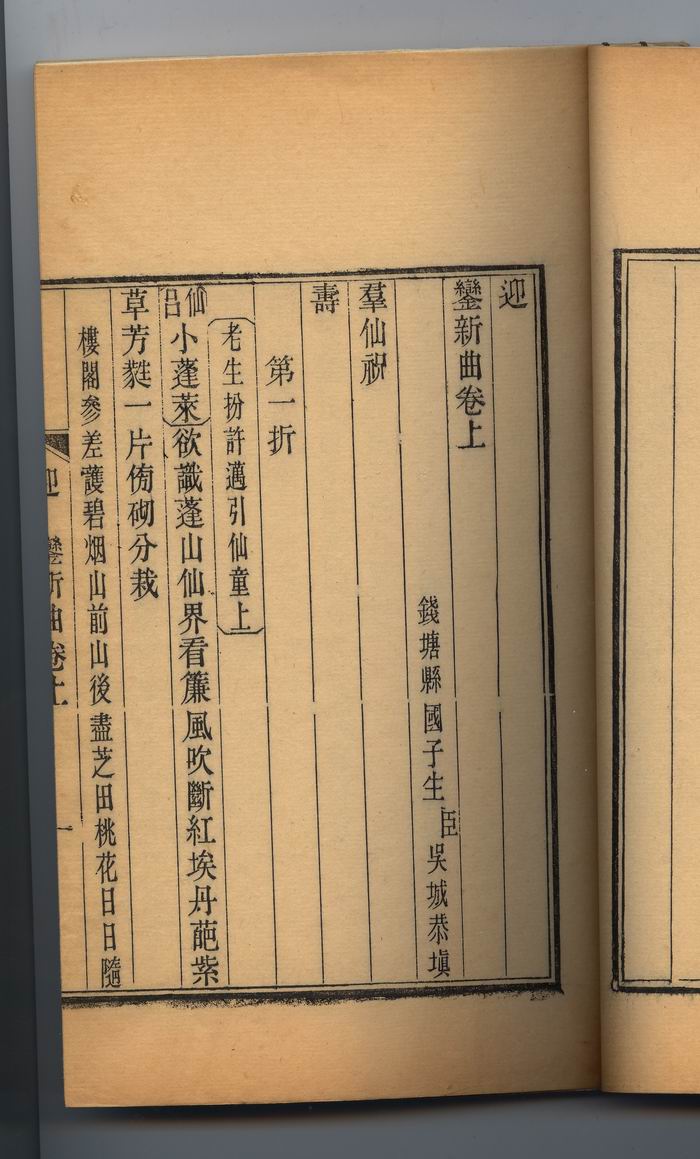 迎
鑾新曲卷上
錢塘縣國子生臣吳城恭塡
羣仙祝
壽
第一折
老生扮許邁引仙童上
仙呂小蓬萊欲識蓬山仙界看簾風吹斷紅埃丹葩紫
草芳蕤一片侑砌分栽
樓閣參差護碧烟山前山後盡芝田桃花日日隨
迎鑾新曲卷上
一